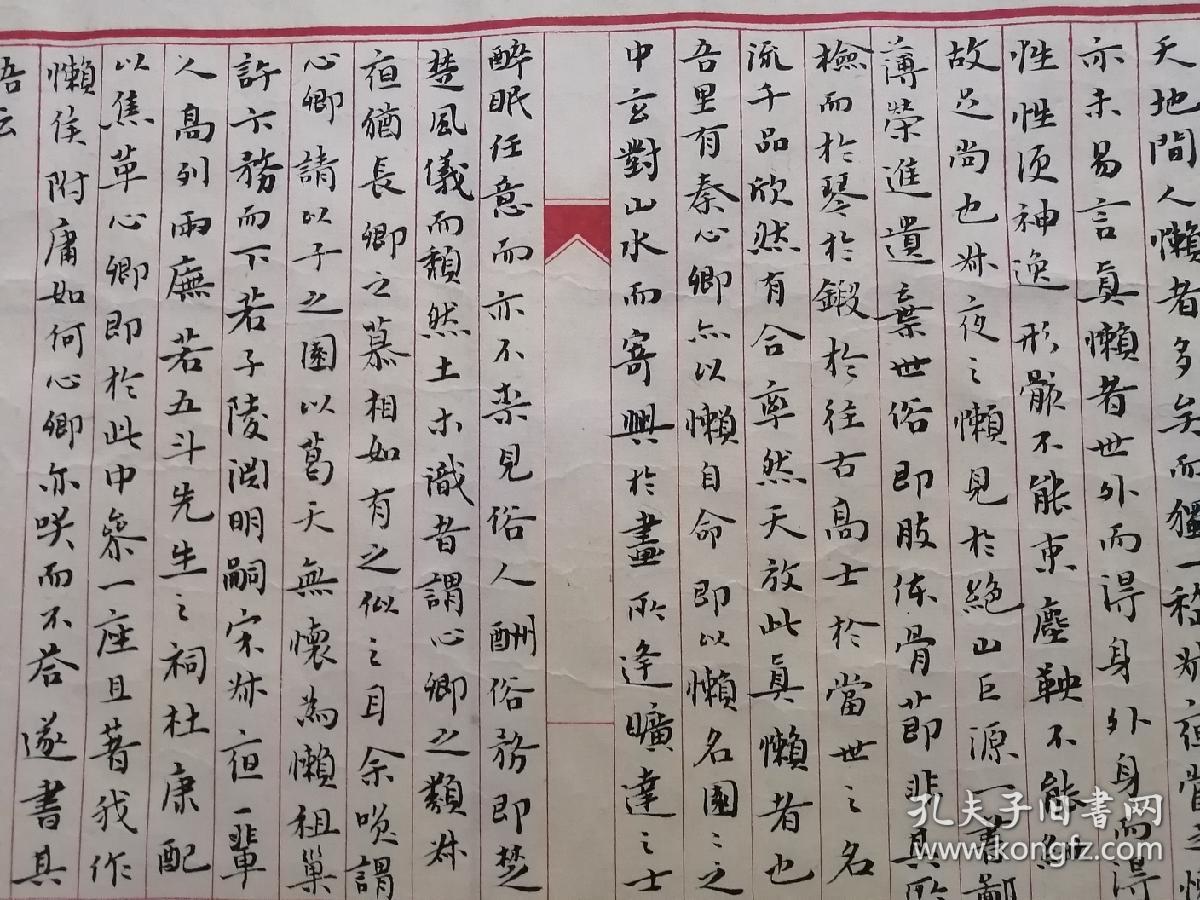 天地間人懶者多矣而獨一稱叔夜嘗之
亦未易言真懶者世外而得身外身而得
性性須神逸形骸不能束塵鞅不能
故足尚也叔夜之懶見於絕山巨源一書鄙
薄榮進遺棄世俗即肢体骨莭悲具所
檢而於琴於鍛於往古高士於當世之名
流千品欣然有合率然天放此真懶者也
吾里有秦心卿亦以懶自命即以懶名園園之
中玄對山水而寄興於畫所逢曠達之士
醉眠任意而亦不柰見俗人酬俗務即楚
楚風儀而頹然土木識者謂心卿之類叔
夜猶長卿之慕相如有之似之目余唉謂
心卿請以子之園以葛天無懷為懶祖巢
許卞務而下若子陵淵明嗣宗叔夜一輩
人高列兩廡若五斗先生之祠杜康配
以焦革心卿即於此中參一座且著我作
懶侯附庸如何心卿亦唉而不答遂書其
語云
孔夫子旧書网
www.kongfz.com